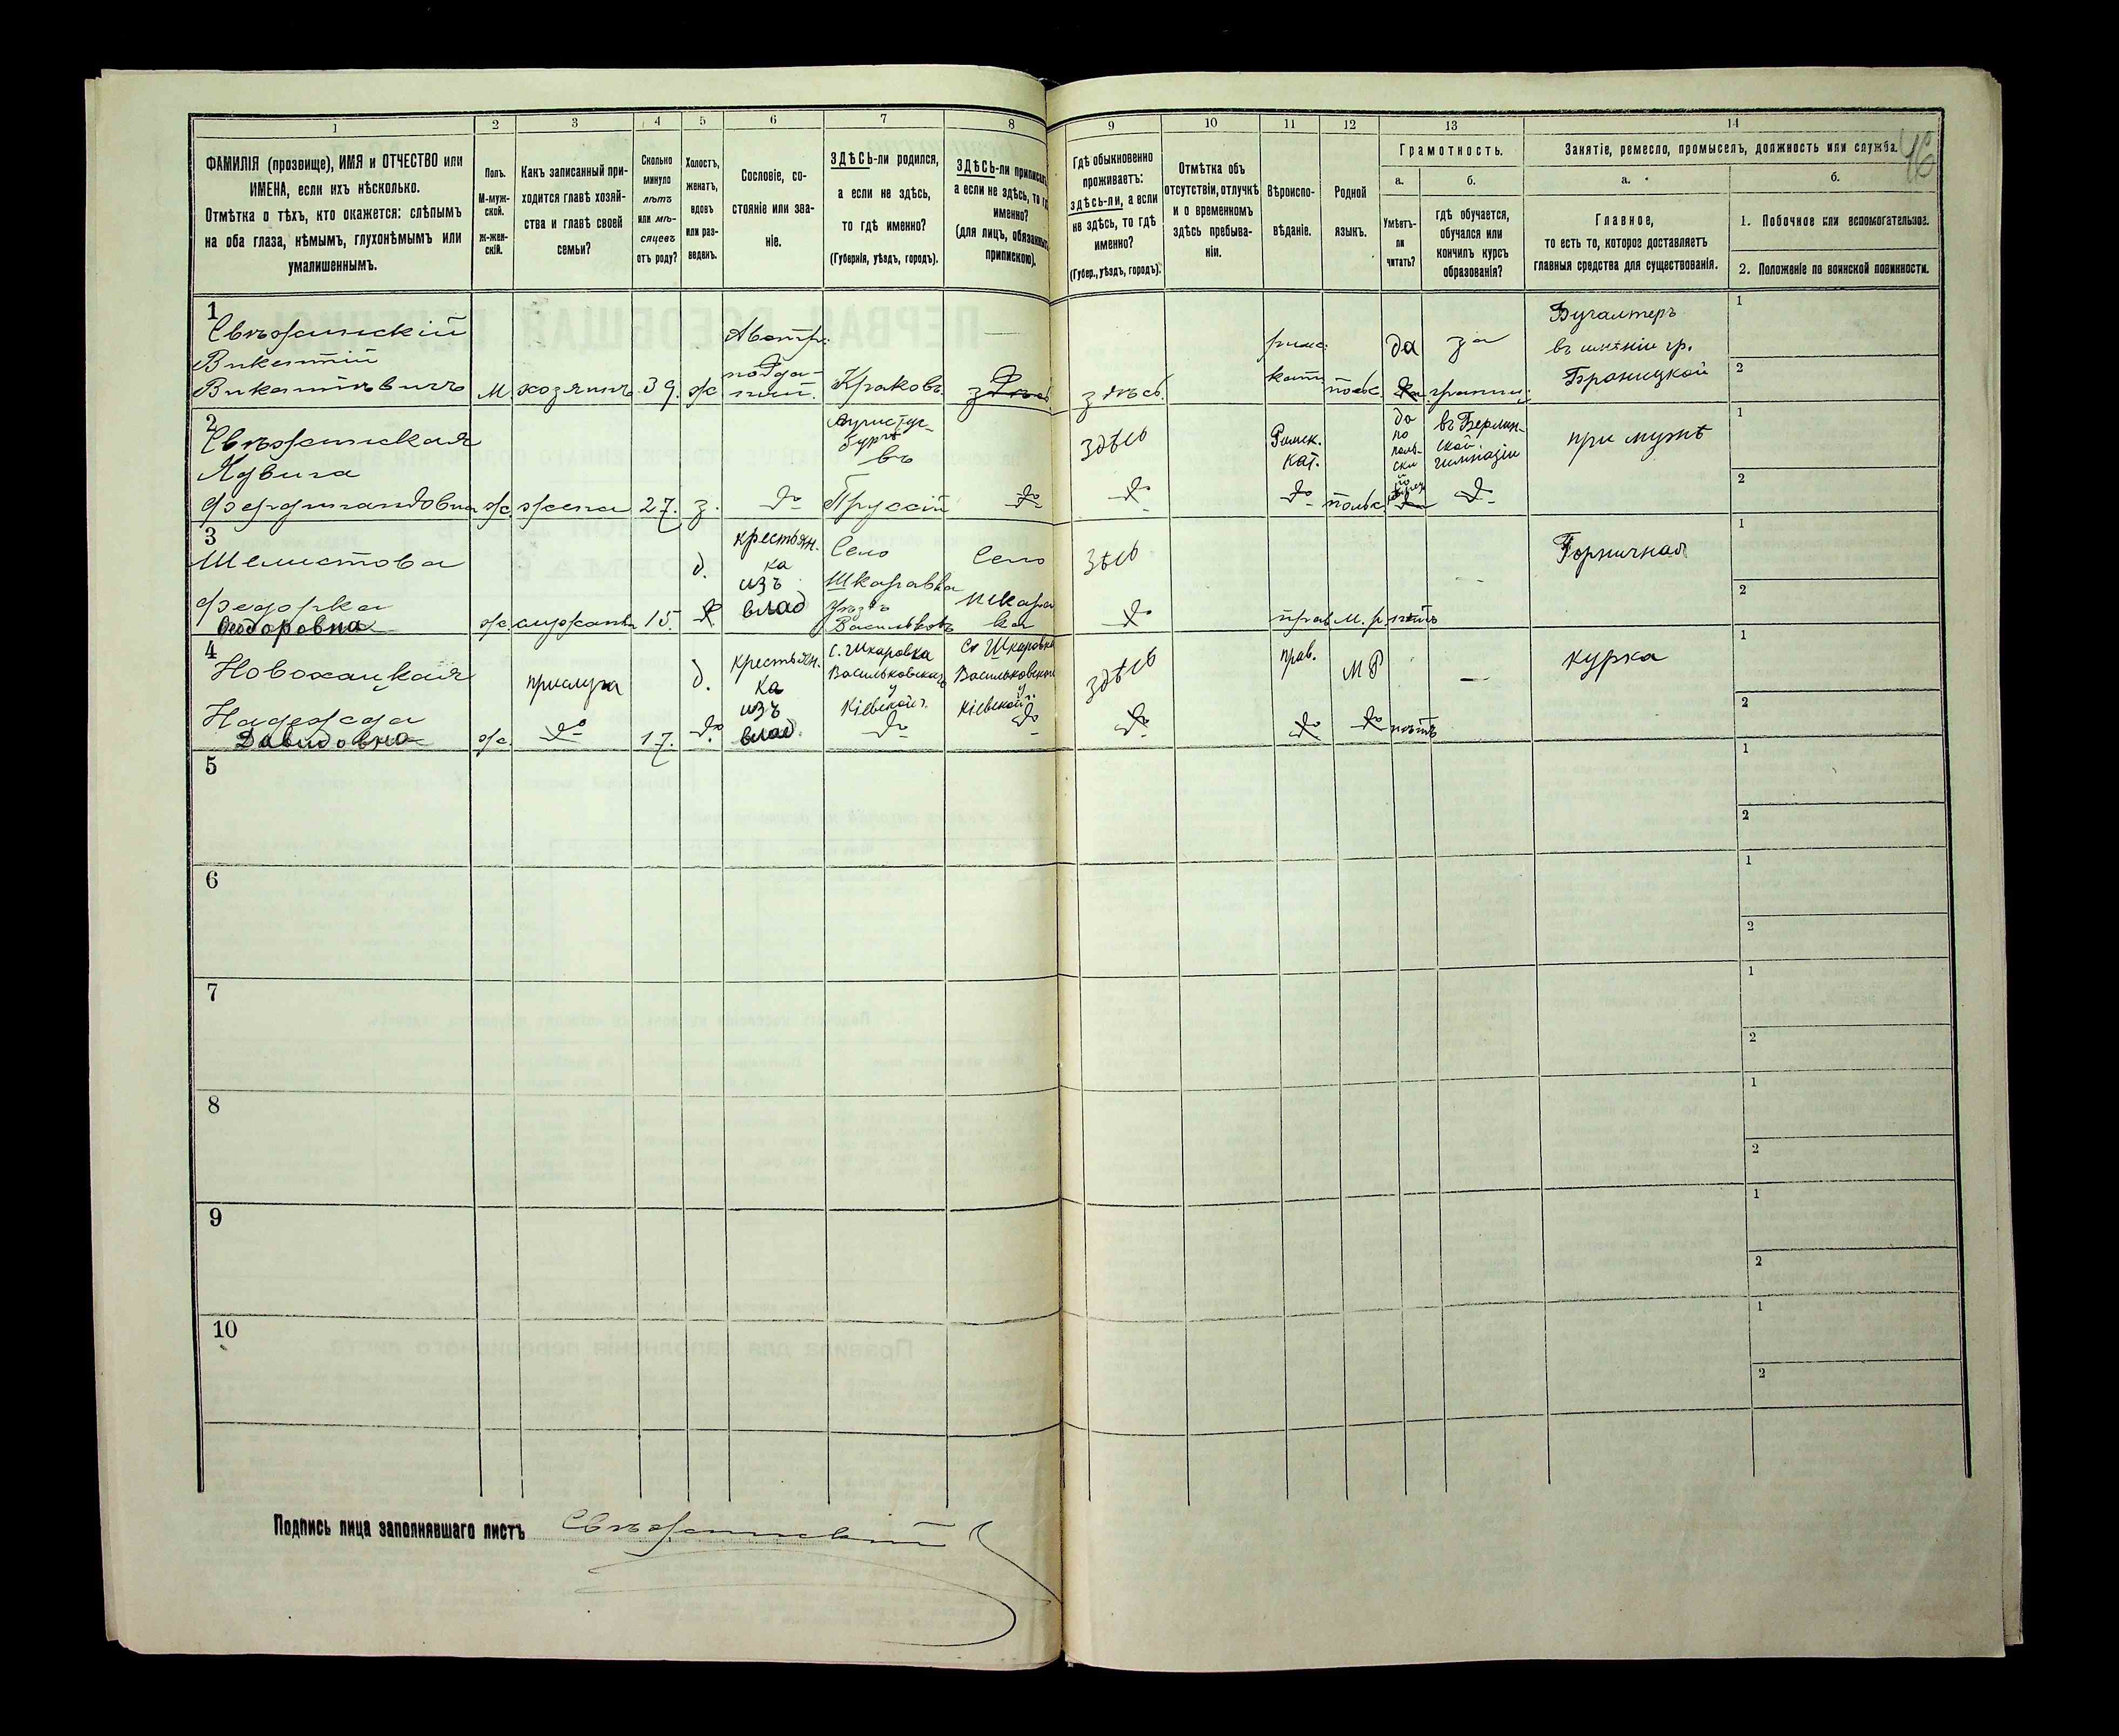 1 2 3 4 5 6 7 8 9 10 11 12 13 14
46
ФАМИЛІЯ (прозвище), ИМЯ и ОТЧЕСТВО или
ИМЕНА, если ихъ нѣсколько.
Отмѣтка о тѣхъ, кто окажется: слѣпымъ
на оба глаза, нѣмымъ, глухонѣмымъ или
умалишеннымъ.
Полъ.
М-муж-
ской.
Ж-жен-
скій.
Какъ записанный при-
ходится главѣ хозяй-
ства и главѣ своей
семьи?
Сколько
минуло
лѣтъ
или мѣ-
сяцевъ
отъ роду?
Холостъ,
женатъ,
вдовъ
или раз-
веденъ.
Сословіе, со-
стояніе или зва-
ніе.
ЗДѢСЬ-ли родился,
а если не здѣсь,
то гдѣ именно?
(Губернія, уѣздъ, городъ).
ЗДѢСЬ-ли приписанъ,
а если не здѣсь, то гдѣ
именно?
(для лицъ, обязанныхъ
припискою).
Гдѣ обыкновенно
проживаетъ:
здѣсь-ли, а если
не здѣсь, то гдѣ
именно?
(Губер., уѣздъ, городъ).
Отмѣтка объ
отсутствіи, отлучкѣ
и о временномъ
здѣсь пребыва-
ніи.
Вѣроиспо-
вѣданіе.
Родной
языкъ.
Грамотность.
а.
Умѣетъ-
ли
читать?
б.
гдѣ обучается,
обучался или
кончилъ курсъ
образованія?
Занятіе, ремесло, промыселъ, должность или служба.
а.
Главное,
то есть то, которое доставляетъ
главныя средства для существованія.
б.
1. Побочное или вспомогательное.
2. Положеніе по воинской повинности.
1
Свѣжинскій
Викентій
Викентіевичъ
М.
хозяинъ
39.
ж
Австр.
поддан-
ный.
Краковъ
здѣсь
здѣсь
римс.
катол.
польс.
да
да
за
границ.
Бухгалтеръ
въ имѣніи гр.
Браницкой
1
2
2
Свѣжинская
Ядвига
Фердинандовна
ж.
жена
27.
з.
до
Августус-
бургъ
въ
Пруссіи
до
здѣсь
до
Римск.
кат.
до
польс.
да
по
поль-
ски
въ Берлин-
ской
гимназіи
до
при мужѣ
1
2
3
Шелистова
Федорка
Федоровна
ж.
служанка
15.
д.
крестьян.
ка
изъ
влад
Село
Шкаравка
уѣздъ
Васильковъ
Село
Шкарав
ка
здѣсь
до
прав.
м. р.
нѣтъ
Горничная
1
2
4
Новохацкая
Надежда
Давидовна
ж.
прислуга
до
17.
д.
до
крестьян.
ка
изъ
влад.
с. Шкаровка
Васильковскаго
у
Кіевской г.
до
с. Шкаровка
Васильковскаго
у.
Кіевской г.
до
здѣсь
до
прав.
до
МР
до
нѣтъ
курка
1
2
5
1
2
6
1
2
7
1
2
8
1
2
9
1
2
10
1
2
Подпись лица заполнявшаго листъ Свѣжинскій